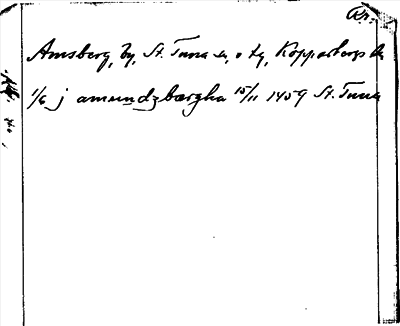 Amsberg, by, St. Tuna sn, o tg, Kopparbergs
1/6 j amundzbærgha 15/11 1459 St. Tuna